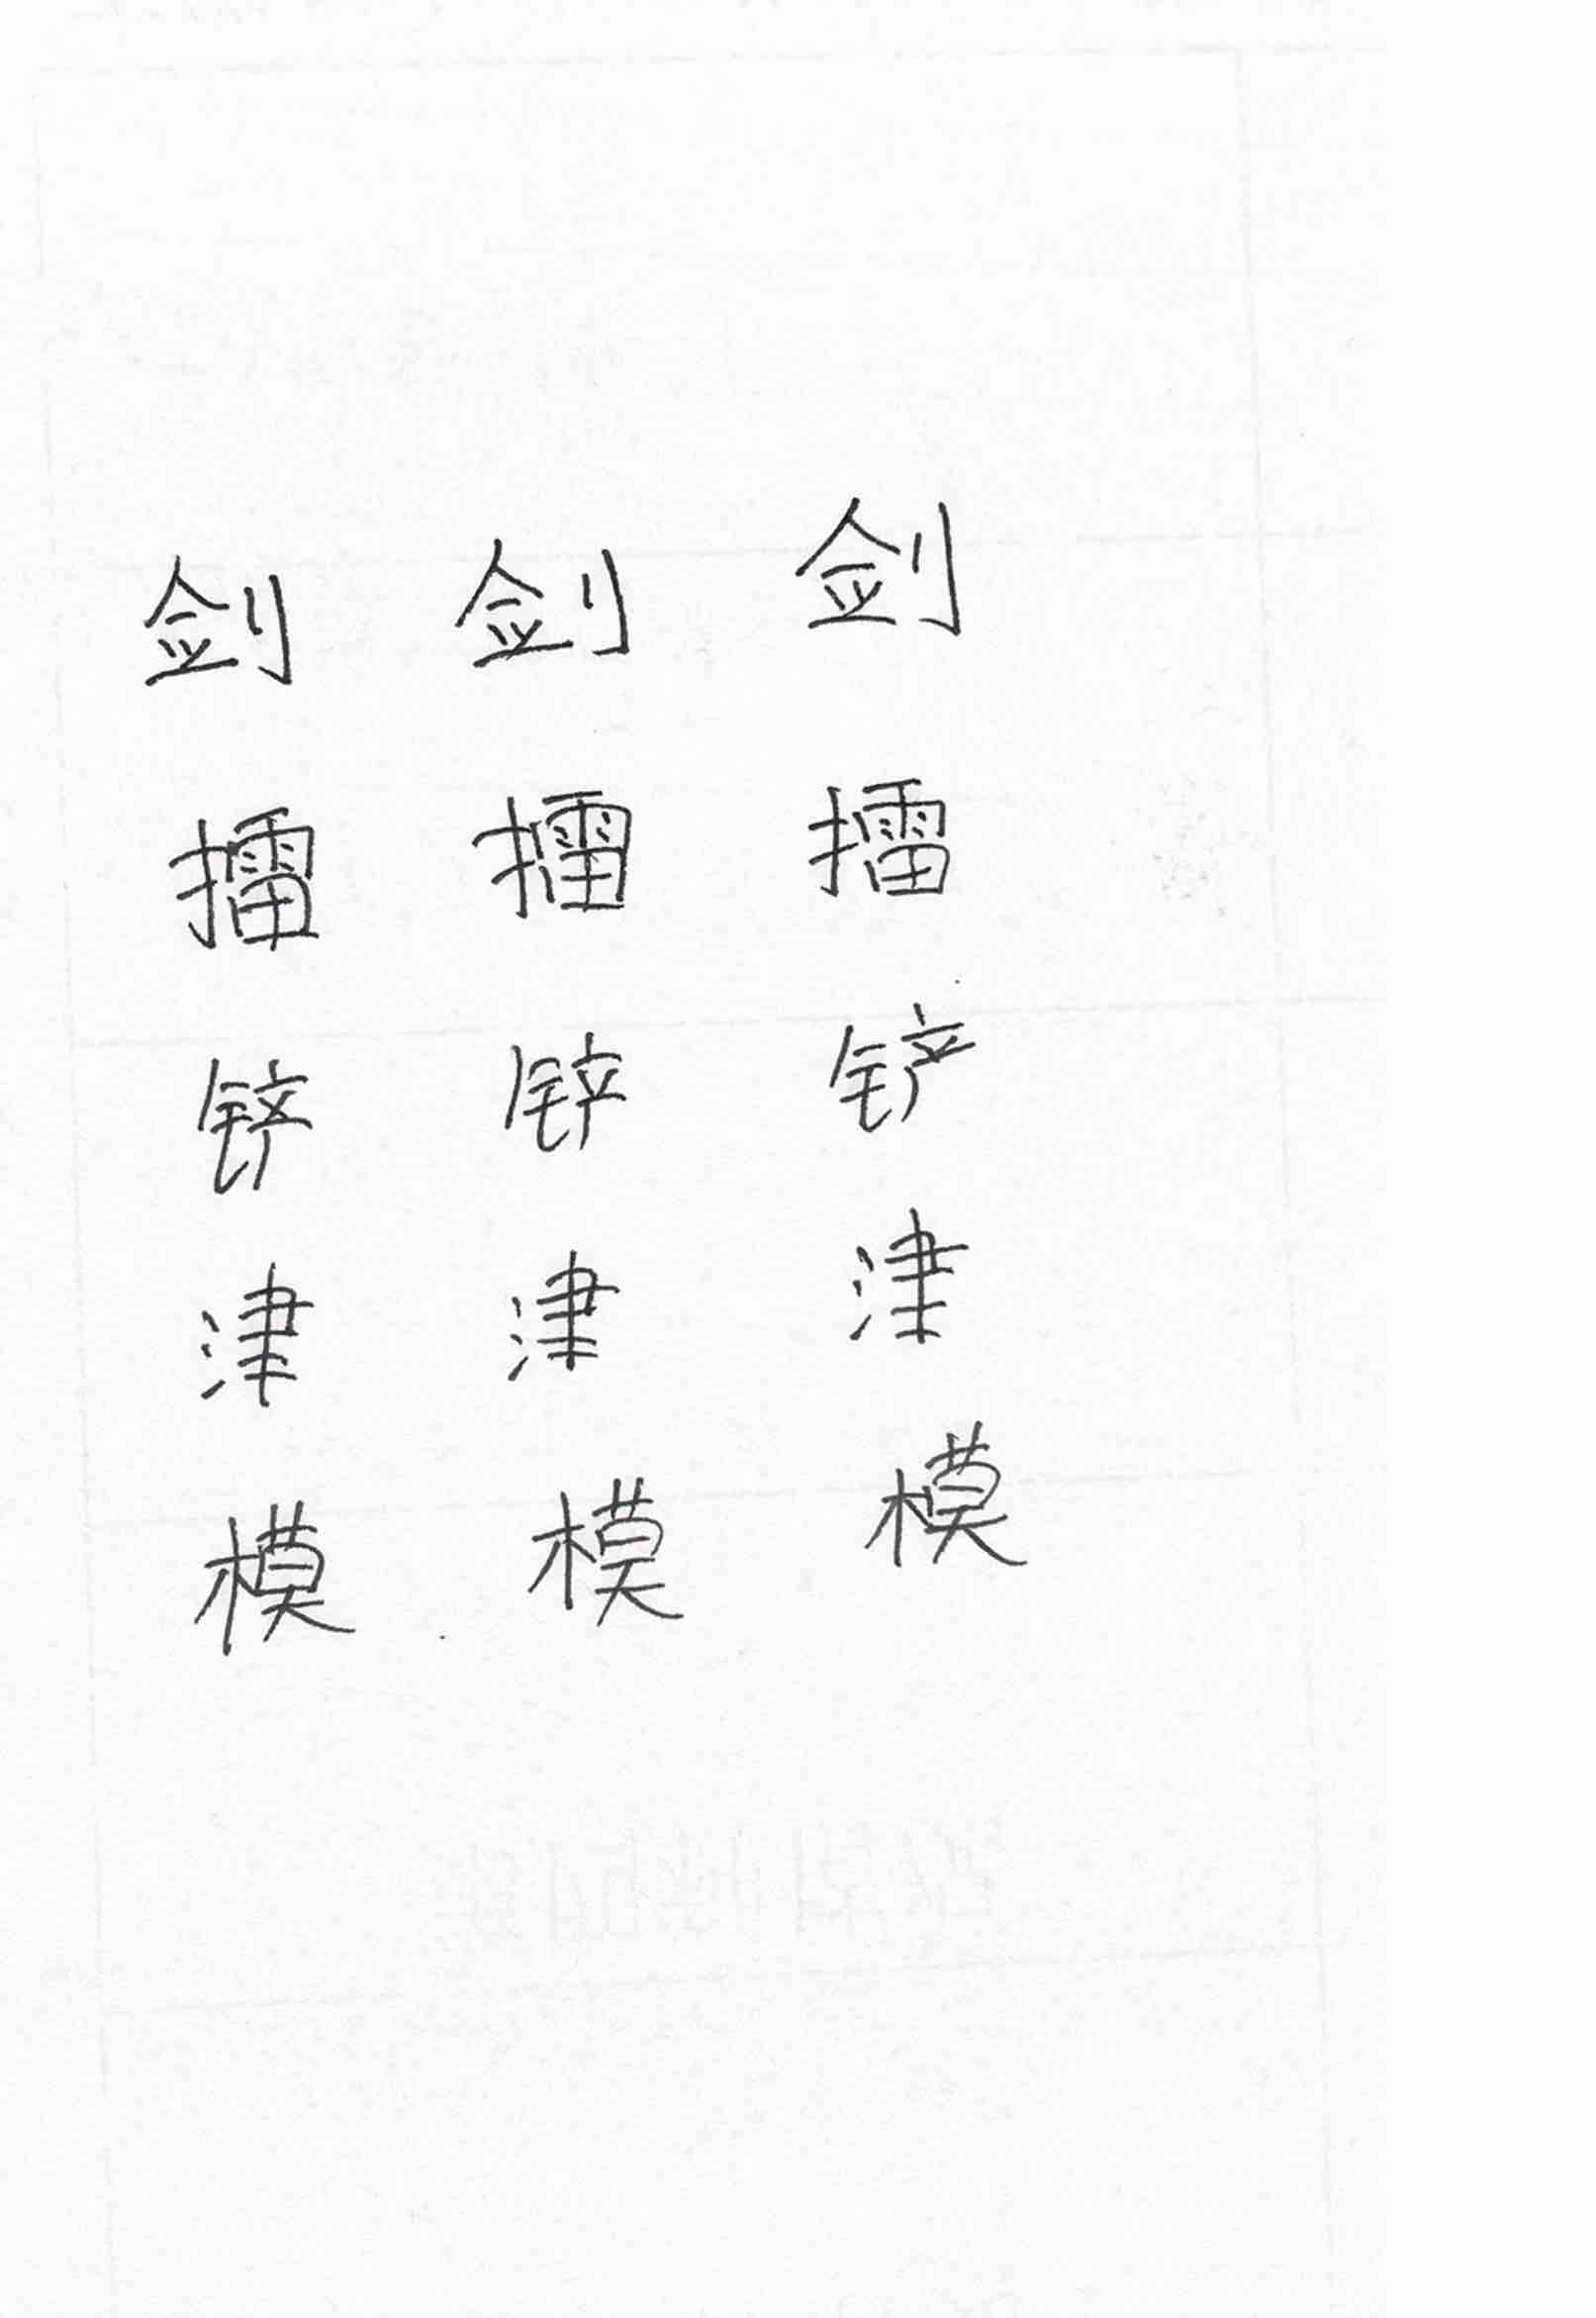 剑 剑 剑
擂 擂 擂
铲 锌 铲
津 津 津
模 模 模